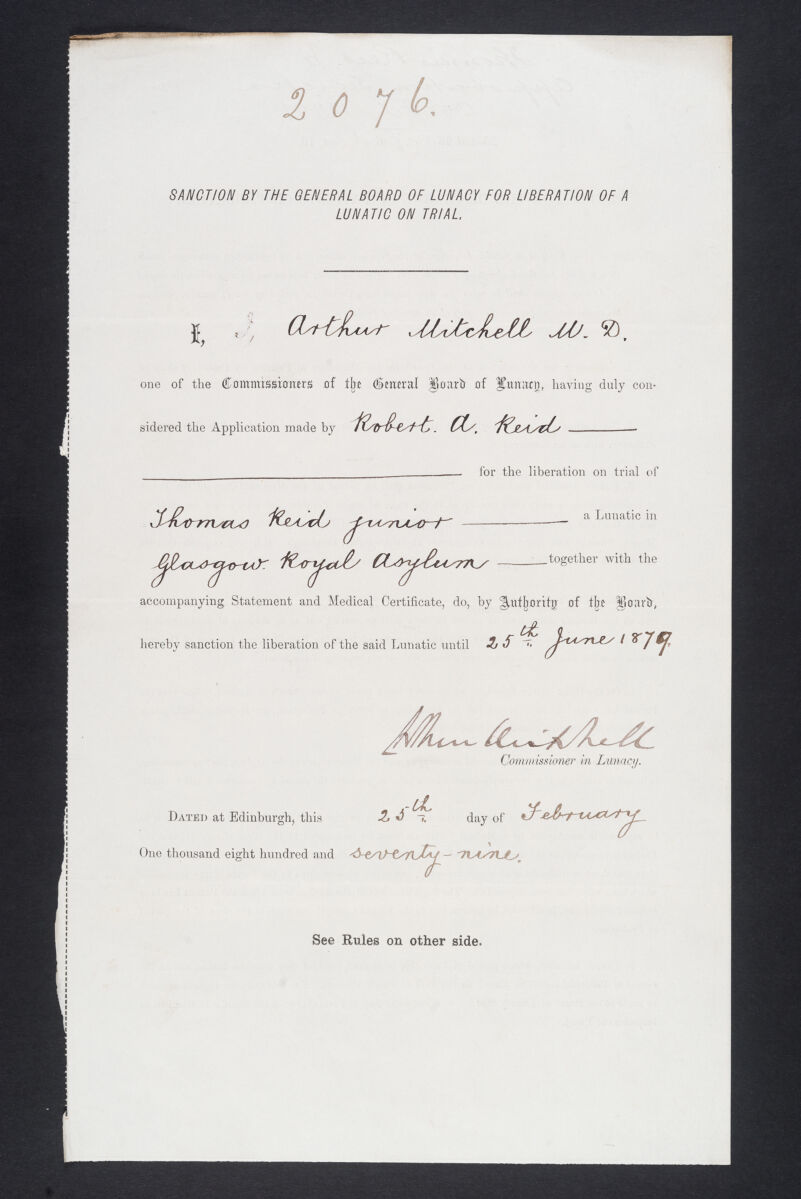 2076.
SANCTION BY THE GENERAL BOARD OF LUNACY FOR LIBERATION OF A
LUNATIC ON TRIAL.
I, Arthur Mitchell M. D.
one of the Commissioners of the General Board of Lunacy, having duly con-
sidered the Application made by Robert. A. Reid
for the liberation on trial of
Thomas Reid junior a Lunatic in
Glasgow Royal Asylum together with the
accompanying Statement and Medical Certificate, do, by Authority of the Board,
hereby sanction the liberation of the said Lunatic until 25th June 1879.
Arthur Mitchell
Commissioner in Lunacy.
DATED at Edinburgh, this 25th day of February
One thousand eight hundred and seventy-nine.
See Rules on other side.